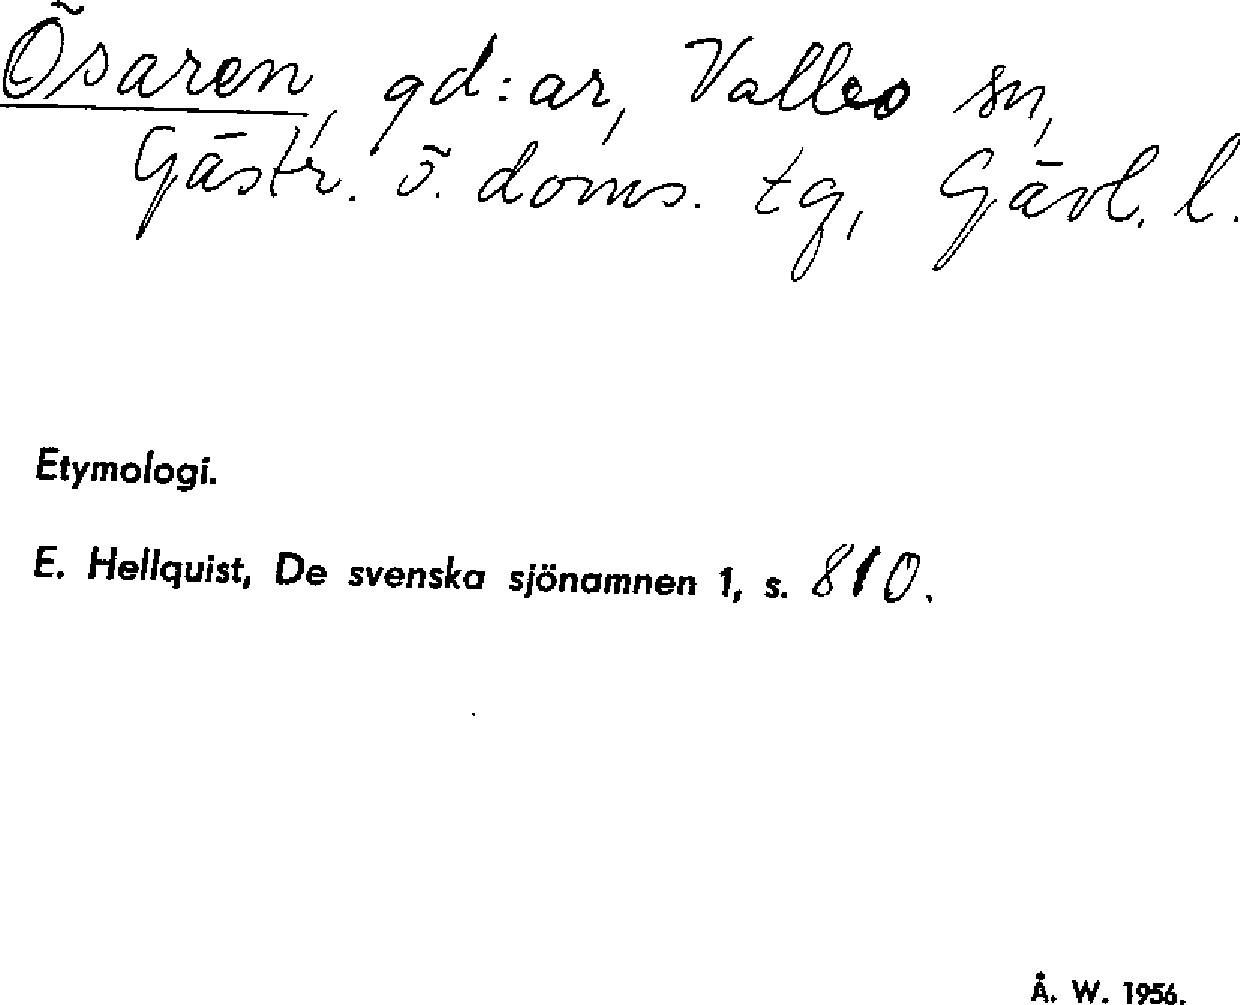 Ösaren, gd:ar, Vallbo sn,
Gästr. ö. doms. tg, Gävl. l.
Etymologi.
E. Hellquist, De svenska sjönamnen 1, s. 810.
Å. W. 1956.